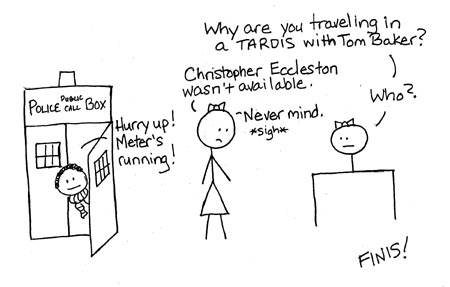 Why are you traveling in
a TARDIS with Tom Baker?
Christopher Eccleston
wasn't available.
Who?
Never mind.
*sigh*
POLICE PUBLIC CALL BOX
Hurry up!
Meter's
running!
FINIS!